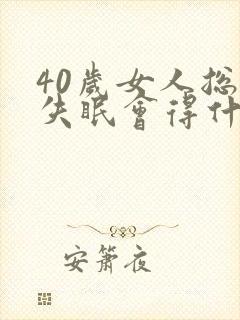 40歲女人總
失眠會得什
安簫夜